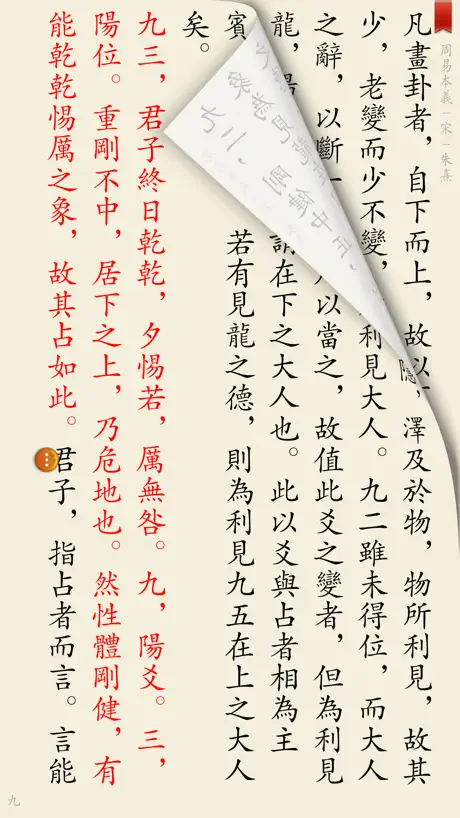 周易本義－宋－朱熹
凡畫卦者，自下而上，故以 隱，澤及於物，物所利見，故其
少，老變而少不變， 利見大人。九二雖未得位，而大人
之辭，以斷一 以當之，故值此爻之變者，但為利見
龍，陽 謂在下之大人也。此以爻與占者相為主
賓 若有見龍之德，則為利見九五在上之大人
矣。
九三，君子終日乾乾，夕惕若，厲無咎。九，陽爻。三，
陽位。重剛不中，居下之上，乃危地也。然性體剛健，有
能乾乾惕厲之象，故其占如此。君子，指占者而言。言能
九